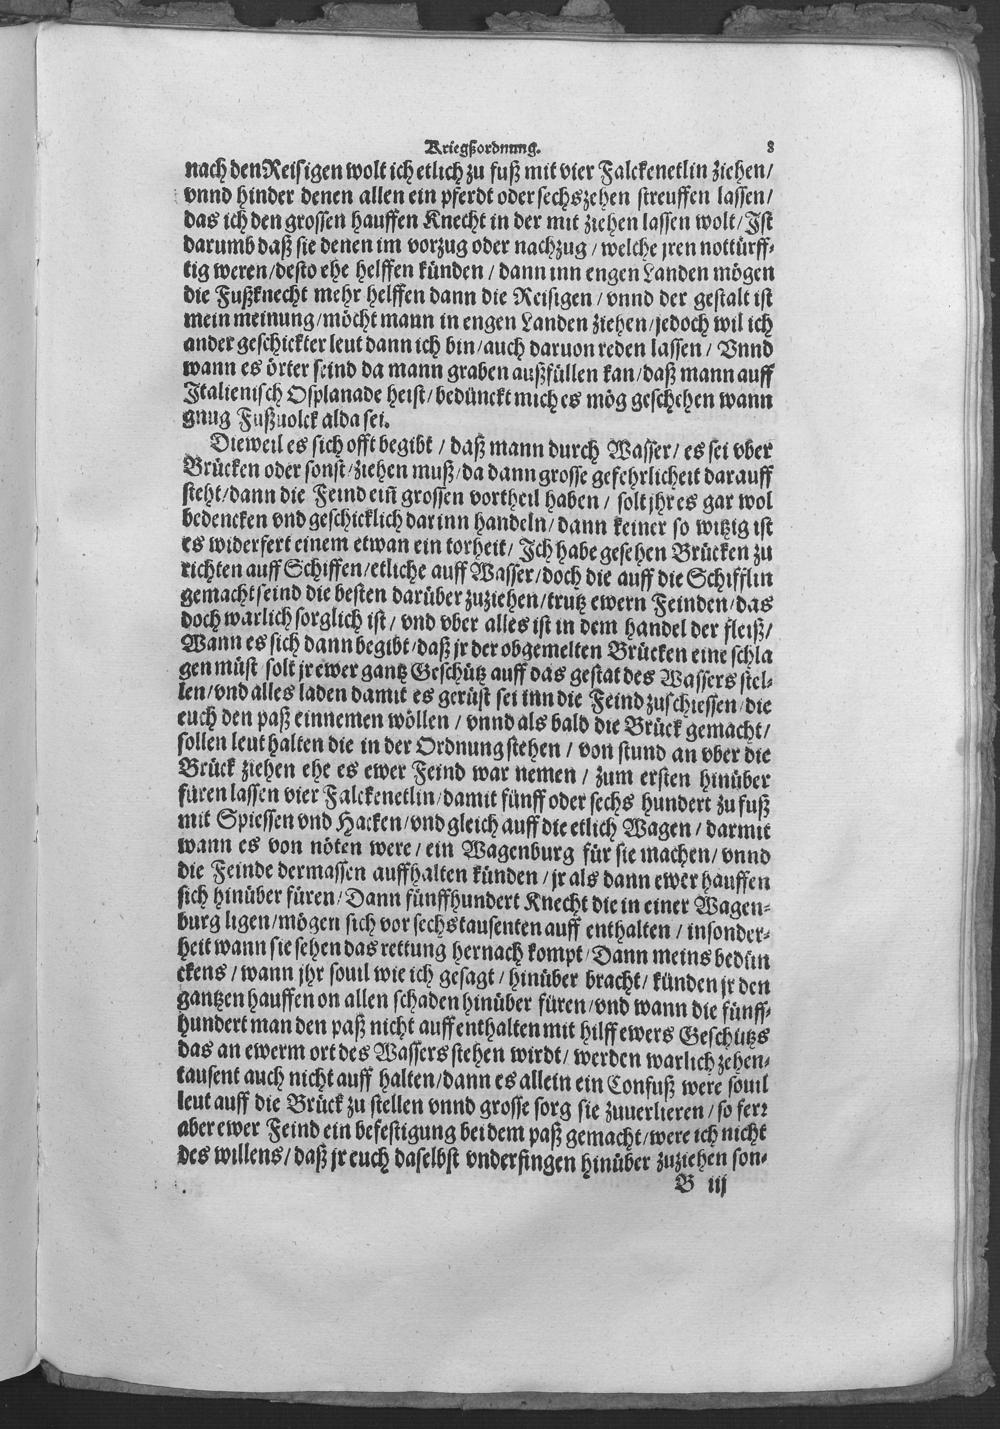 Kriegßordnung. 8
nach den Reisigen wolt ich etlich zu fuß mit vier Falckenetlin ziehen/
vnnd hinder denen allen ein pferdt oder sechszehen streuffen lassen/
das ich den grossen hauffen Knecht in der mit ziehen lassen wolt/ Ist
darumb daß sie denen im vorzug oder nachzug/ welche jren nottürff-
tig weren/ desto ehe helffen künden/ dann inn engen Landen mögen
die Fußknecht mehr helffen dann die Reisigen/ vnnd der gestalt ist
mein meinung/ möcht mann in engen Landen ziehen/ jedoch wil ich
ander geschickter leut dann ich bin/ auch daruon reden lassen/ Vnnd
wann es örter seind da mann graben außfüllen kan/ daß mann auff
Italienisch Osplanade heist/ bedünckt mich es mög geschehen wann
gnug Fußuolck alda sei.
Dieweil es sich offt begibt/ daß mann durch Wasser/ es sei vber
Brücken oder sonst/ ziehen muß/ da dann grosse gefehrlicheit darauff
steht/ dann die Feind ein̄ grossen vortheil haben/ solt jhr es gar wol
bedencken vnd geschicklich darinn handeln/ dann keiner so witzig ist
es widerfert einem etwan ein torheit/ Ich habe gesehen Brücken zu
richten auff Schiffen/ etliche auff Wasser/ doch die auff die Schifflin
gemacht seind die besten darüber zuziehen/ trutz ewern Feinden/ das
doch warlich sorglich ist/ vnd vber alles ist in dem handel der fleiß/
Wann es sich dann begibt/ daß jr der obgemelten Brücken eine schla
gen müst/ solt jr ewer gantz Geschütz auff das gestat des Wassers stel-
len/ vnd alles laden damit es gerüst sei inn die Feind zuschiessen/ die
euch den paß einnemen wöllen/ vnnd als bald die Brück gemacht/
sollen leut halten die in der Ordnung stehen/ von stund an vber die
Brück ziehen ehe es ewer Feind war nemen/ zum ersten hinüber
füren lassen vier Falckenetlin/ damit fünff oder sechs hundert zu fuß
mit Spiessen vnd Hacken/ vnd gleich auff die etlich Wagen/ darmit
wann es von nöten were/ ein Wagenburg für sie machen/ vnnd
die Feinde dermassen auffhalten künden/ jr als dann ewer hauffen
sich hinüber füren/ Dann fünffhundert Knecht die in einer Wagen-
burg ligen/ mögen sich vor sechstausenten auff enthalten/ insonder-
heit wann sie sehen das rettung hernach kompt/ Dann meins bedün
ckens/ wann jhr souil wie ich gesagt/ hinüber bracht/ künden jr den
gantzen hauffen on allen schaden hinüber füren/ vnd wann die fünff-
hundert man den paß nicht auff enthalten mit hilff ewers Geschützs
das an ewerm ort des Wassers stehen wirdt/ werden warlich zehen-
tausent auch nicht auff halten/ dann es allein ein Confuß were souil
leut auff die Brück zu stellen vnnd grosse sorg sie zuuerlieren/ so ferr
aber ewer Feind ein befestigung bei dem paß gemacht/ were ich nicht
des willens/ daß jr euch daselbst vnderfingen hinüber zuziehen son-
B iij